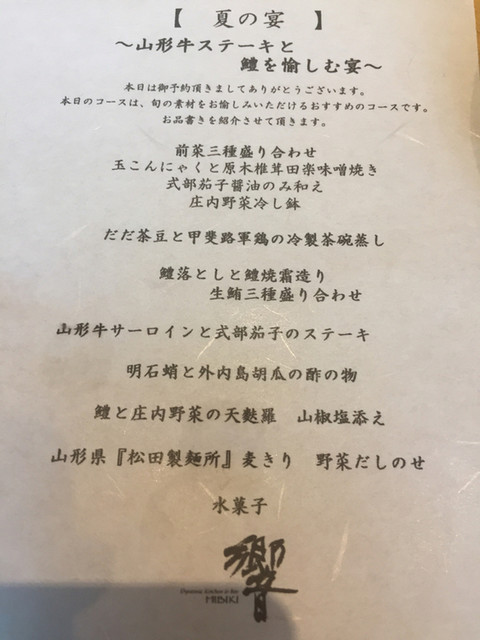 【 夏の宴 】
～山形牛ステーキと
鱧を愉しむ宴～
本日は御予約頂きましてありがとうございます。
本日のコースは、旬の素材をお愉しみいただけるおすすめのコースです。
お品書きを紹介させて頂きます。
前菜三種盛り合わせ
玉こんにゃくと原木椎茸田楽味噌焼き
式部茄子醤油のみ和え
庄内野菜冷し鉢
だだ茶豆と甲斐路軍鶏の冷製茶碗蒸し
鱧落としと鱧焼霜造り
生鮪三種盛り合わせ
山形牛サーロインと式部茄子のステーキ
明石蛸と外内島胡瓜の酢の物
鱧と庄内野菜の天麩羅 山椒塩添え
山形県『松田製麺所』麦きり 野菜だしのせ
水菓子
響
Dynamic Kitchen & Bar
HIBIKI